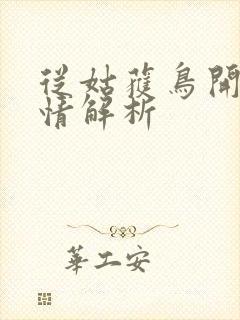 從姑獲鳥開
情解析
華工安